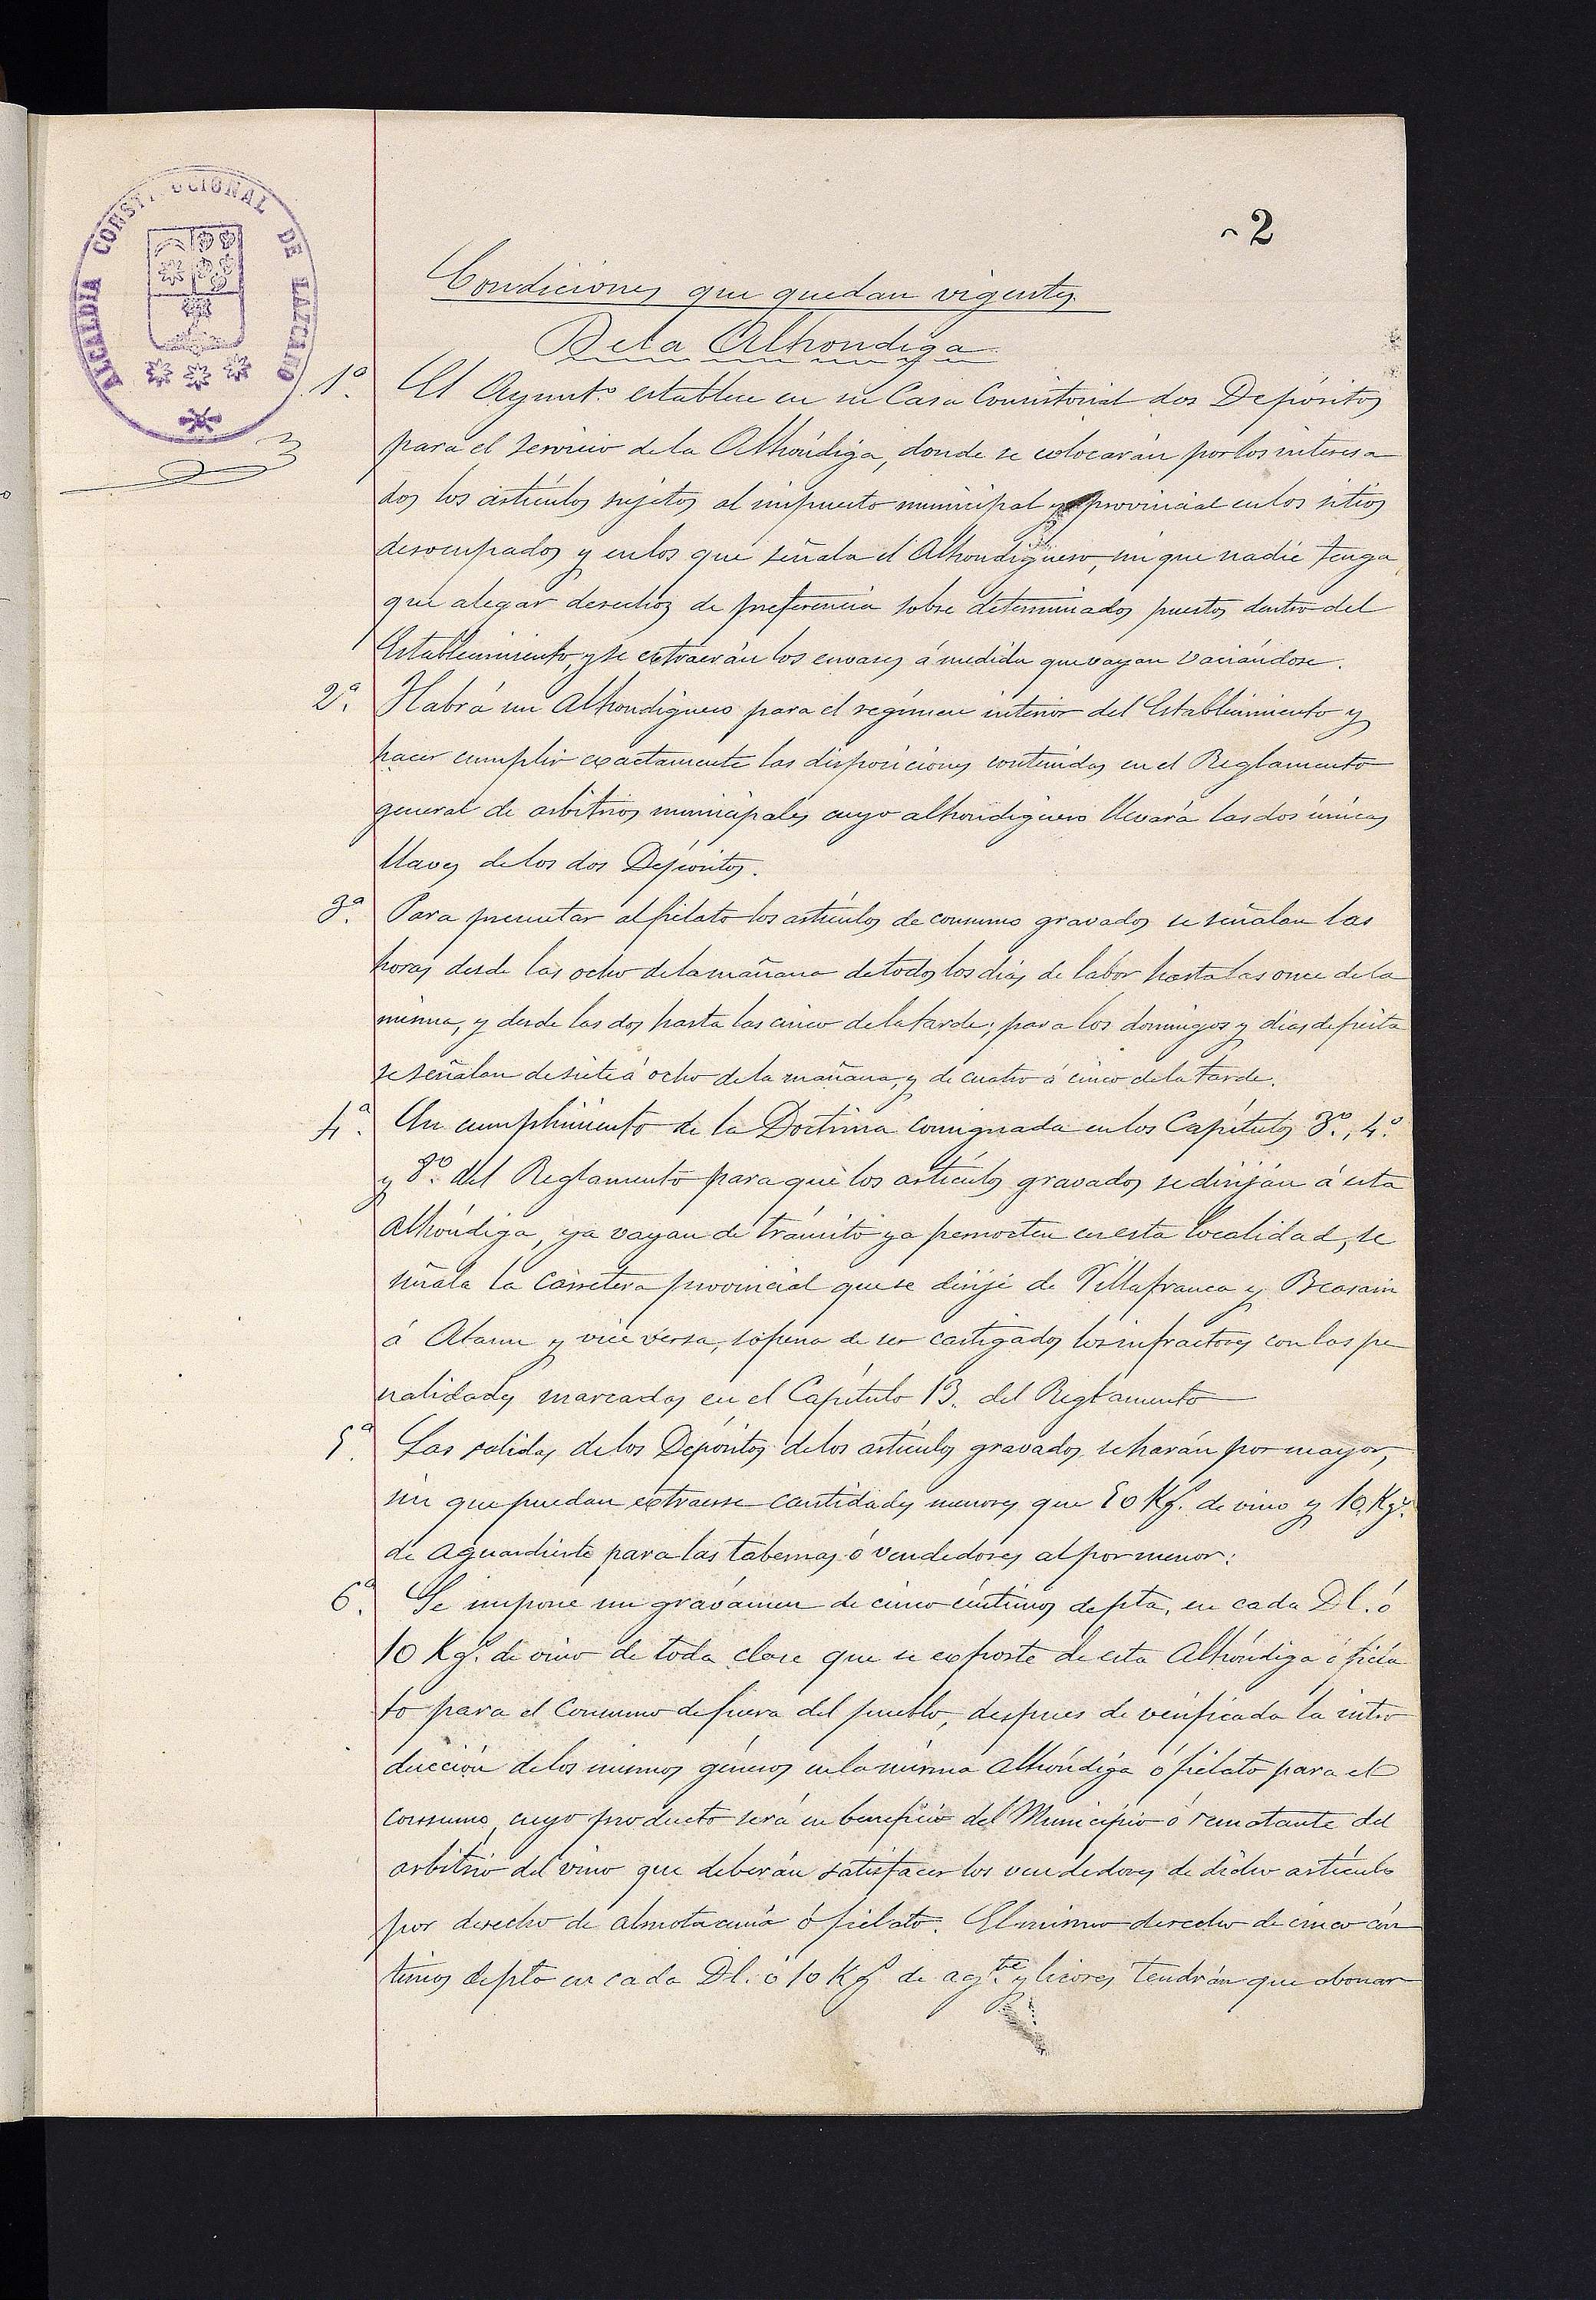 2
ALCALDIA CONSTITUCIONAL DE LAZCANO
Condiciones que quedan vigentes
De la Alhondiga
1º. El Ayunt.º establece en su Casa Consistorial dos Depósitos
para el servicio de la Alhóndiga, donde se colocarán por los interesa
dos los artículos sujetos al impuesto municipal y provincial en los sitios
desocupados y en los que señala el Alhondiguero, sin que nadie tenga
que alegar derechos de preferencia sobre determinados puestos dentro del
Establecimiento, y se extraerán los envases á medida que vayan vaciándose.
2ª. Habrá un Alhondiguero para el regimen interior del Establecimiento y
hacer cumplir exactamente las disposiciones contenidas en el Reglamento
general de arbitrios municipales cuyo alhondiguero llevará las dos únicas
llaves de los dos Depósitos.
3ª. Para presentar al fielato los artículos de consumo gravados se señalan las
horas desde las ocho de la mañana de todos los días de labor hasta las once de la
misma, y desde las dos hasta las cinco de la tarde; para los domingos y dias de fiesta
se señalan de siete á ocho de la mañana, y de cuatro á cinco de la tarde.
4ª. En cumplimiento de la Doctrina consignada en los Capítulos 3º., 4.º
y 8º. del Reglamento para que los artículos gravados se dirijan á esta
Alhóndiga, ya vayan de tránsito ya pernocten en esta localidad, se
señala la carretera provincial que se dirije de Villafranca y Beasain
á Ataun y vice versa, sopena de ser castigados los infractores con las pe
nalidades marcadas en el Capítulo 13. del Reglamento
5ª. Las salidas de los Depósitos de los artículos gravados se harán por mayor,
sin que puedan extraerse cantidades menores que 50 Kgs. de vino y 10 Kgs.
de aguardiente para las tabernas ó vendedores al por menor:
6ª. Se impone un gravámen de cinco céntimos de pta. en cada Dl. ó
10 Kgs. de vino de toda clase que se exporte de esta Alhóndiga ó fiela
to para el consumo de fuera del pueblo, despues de verificada la intro
ducción de los mismos géneros en la misma Alhóndiga ó fielato para el
consumo, cuyo producto será en beneficio del Municipio ó rematante del
arbitrio del vino que deberán satisfacer los vendedores de dicho artículo
por derecho de almotacenía ó fielato. El mismo derecho de cinco cén
timos de pta en cada Dl. ó 10 Kgs de ag.te y licores tendrán que abonar